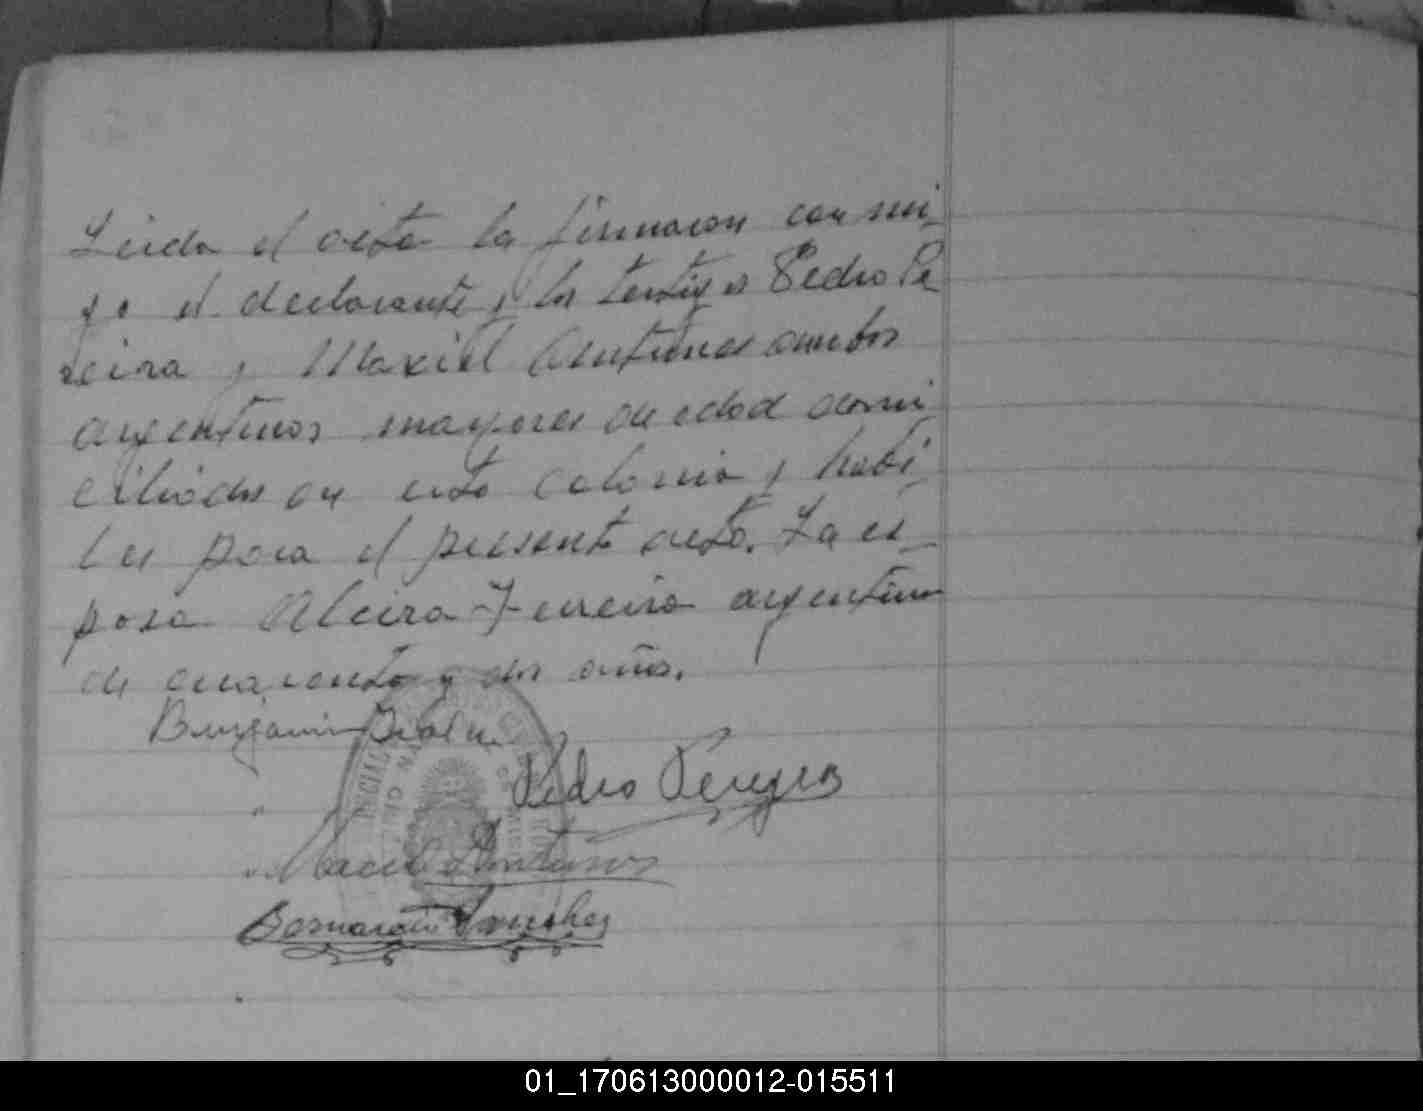 Leida el acta la firmaron con mi
go el declarante y los testigos Pedro Pe
reira y Maxiel Antunes ambos
argentinos mayores de edad domi
ciliados en esta colonia y habi
les para el presente acto. La es
posa Alcira Ferreira argentina
de cuarenta y dos años.
Benjamin
Pedro Pereyra
Antunes
Bernardo Sanchez
01_170613000012-015511